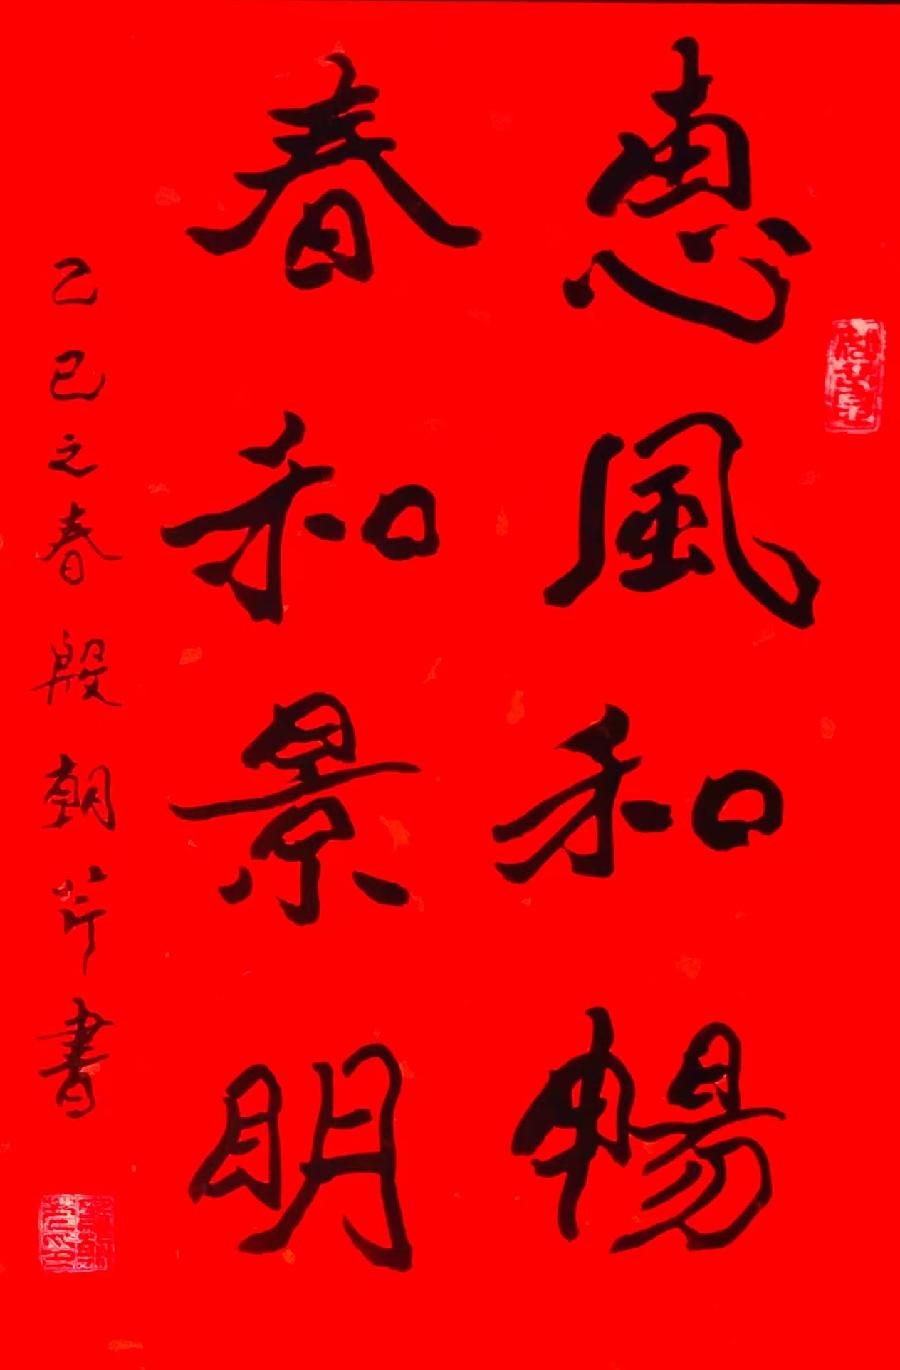 惠風和暢
春和景明
乙巳之春殷朝芹書